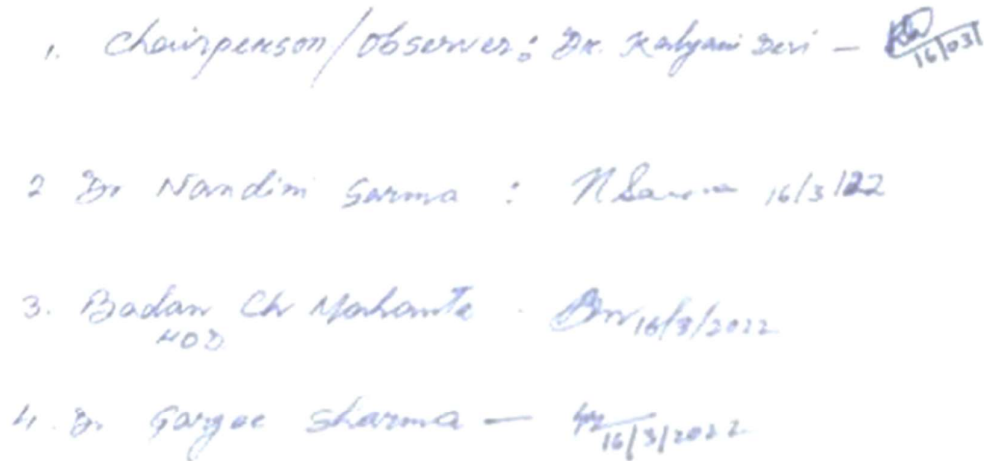 1. Chairperson/Observer: Dr. Kalyani Devi - 16/03/
2 Dr Nandini Sarma : NSarma 16/3/22
3. Badan Ch Mahanta - 16/3/2022
HOD
4. Dr Gargee Sharma - 16/3/2022